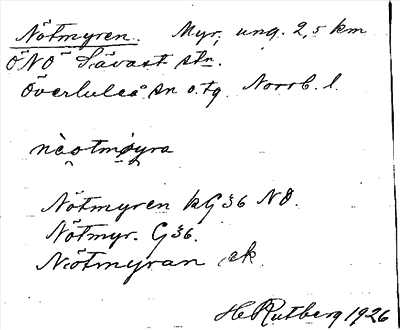 Nötmyren. Myr, ung. 2,5 km
ÖNÖ Sävast stn.
Överluleå sn o. tg. Norrb. l.
nèotmøyra
Nötmyren kG 36 NO.
Nötmyr. G 36.
Nötmyran ek.
H Rutberg 1926